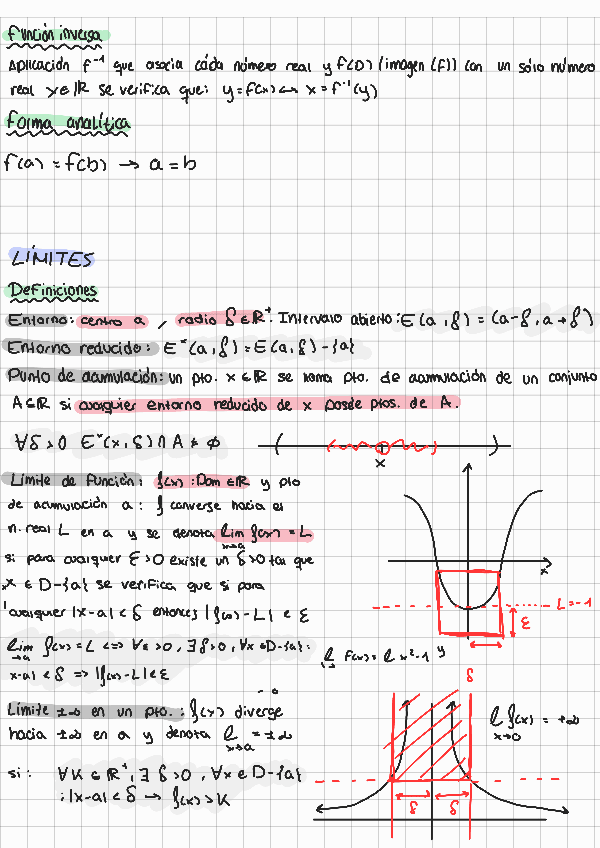 Función inversa
Aplicación f⁻¹ que asocia cada número real y f(D) (imagen (f)) con un sólo número
real x∈ℝ se verifica que: y=f(x) ↔ x=f⁻¹(y)
Forma analítica
f(a) = f(b) → a = b
LÍMITES
Definiciones
Entorno: centro a, radio δ∈ℝ⁺. Intervalo abierto: E(a,δ) = (a-δ, a+δ)
Entorno reducido: E*(a,δ) = E(a,δ) - {a}
Punto de acumulación: un pto. x∈ℝ se llama pto. de acumulación de un conjunto
A∈ℝ si cualquier entorno reducido de x posde ptos. de A.
∀δ>0 E*(x,δ)∩A ≠ ∅
x
Límite de función: f(x): Dom∈ℝ y pto
de acumulación a: f converse hacia el
n. real L en a y se denota lim f(x) = L
x→a
si para cualquier ε>0 existe un δ>0 tal que
x ∈ D-{a} se verifica que si para
cualquier |x-a| < δ entonces |f(x)-L| < ε
x
L=-1
ε
lim f(x) = L <=> ∀ε>0, ∃δ>0, ∀x∈D-{a}:
→a
x-a| < δ => |f(x)-L| < ε
f(x) = x²-1 y
δ
Límite ±∞ en un pto.: f(x) diverge
hacia ±∞ en a y denota l = ±∞
x→a
l f(x) = +∞
x→0
si: ∀K∈ℝ⁺, ∃ δ>0, ∀x∈D-{a}
: |x-a| < δ → f(x) > K
δ δ
δ